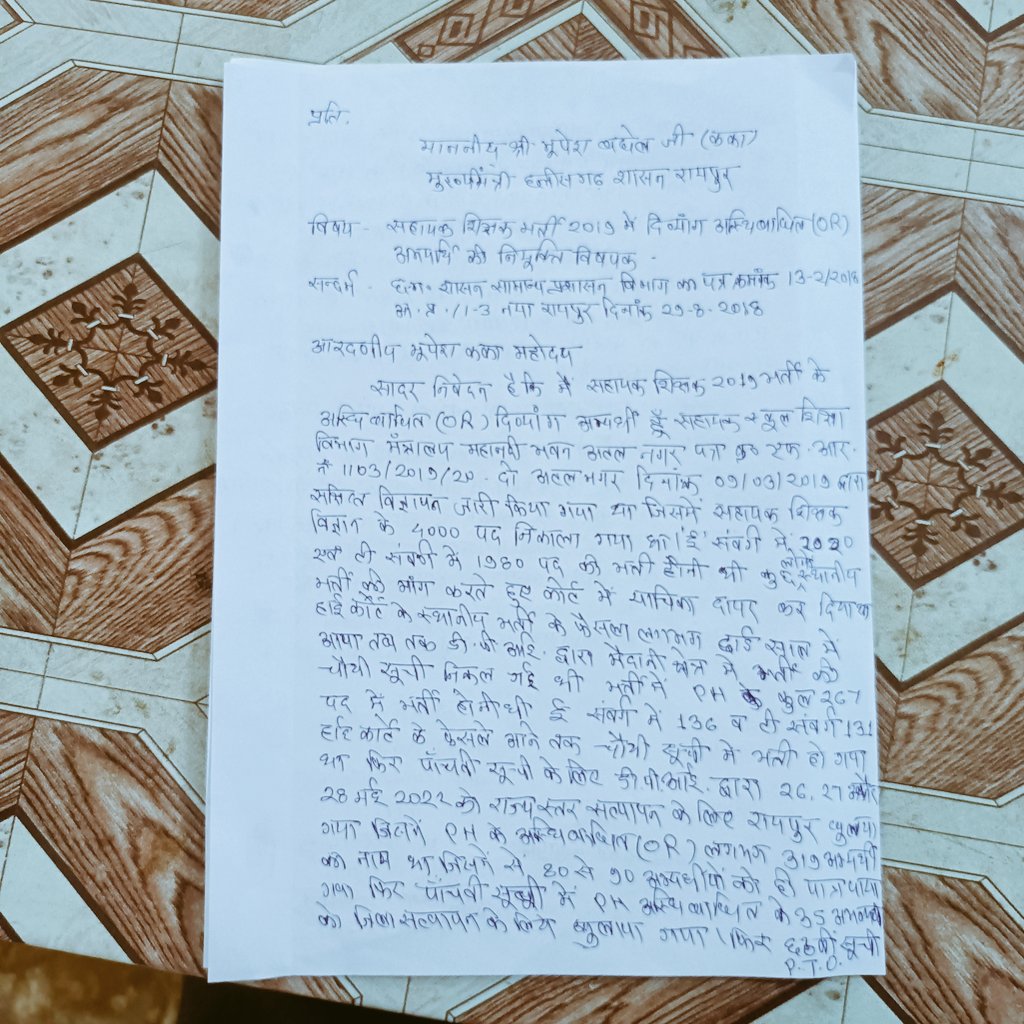 प्रति.
माननीय श्री भूपेश बघेल जी (कका)
मुख्यमंत्री छत्तीसगढ़ शासन रायपुर
विषय - सहायक शिक्षक भर्ती 2019 में दिव्यांग अस्थिबाधित (OR)
अभ्यर्थि की नियुक्ति विषयक -
सन्दर्भ - छ.ग. शासन सामान्य प्रशासन विभाग का पत्र क्रमांक 13-2/2018
आ.प्र./1-3 नया रायपुर दिनांक 29-8-2018
आदरणीय भूपेश कका महोदय
सादर निवेदन है कि मैं सहायक शिक्षक 2019 भर्ती के
अस्थिबाधित (OR) दिव्यांग अभ्यर्थी हूँ सहायक स्कूल शिक्षा
विभाग मंत्रालय महानदी भवन अटल नगर पत्र क्र. एफ. आर.
नं 1103/2019/20. दो अटल नगर दिनांक 09/03/2019 द्वारा
विज्ञापन जारी किया गया था जिसमें सहायक शिक्षक
विज्ञान के 4000 पद निकाला गया था। ई संवर्ग में 2020
एवं टी संवर्ग में 1980 पद की भर्ती होनी थी कुछ लोग स्थानीय
भर्ती की मांग करते हुए कोर्ट में याचिका दायर कर दिया था
हाई कोर्ट के स्थानीय भर्ती के फैसला लगभग ढाई साल में
आया तब तक डी.पी.आई. द्वारा मैदानी क्षेत्र में भर्ती की
चौथी सूची निकल गई थी भर्ती में PH के कुल 267
पद में भर्ती होनी थी ई संवर्ग में 136 व टी संवर्ग 131
हाई कोर्ट के फैसले आने तक चौथी सूची में भर्ती हो गया
था फिर पाँचवी सूची के लिए डी.पी.आई. द्वारा 26, 27 और
28 मई 2022 को राज्य स्तर सत्यापन के लिए रायपुर बुलाया
गया जिसमें PH के अस्थिबाधित (OR) लगभग 319 अभ्यर्थी
का नाम था जिसमें से 80 से 90 अभ्यर्थीयों को ही पात्र पाया
गया फिर पाँचवी सूची में PH अस्थिबाधित के 35 अभ्यर्थी
को जिला सत्यापन के लिये बुलाया गया। फिर छठवीं सूची
P.T.O.